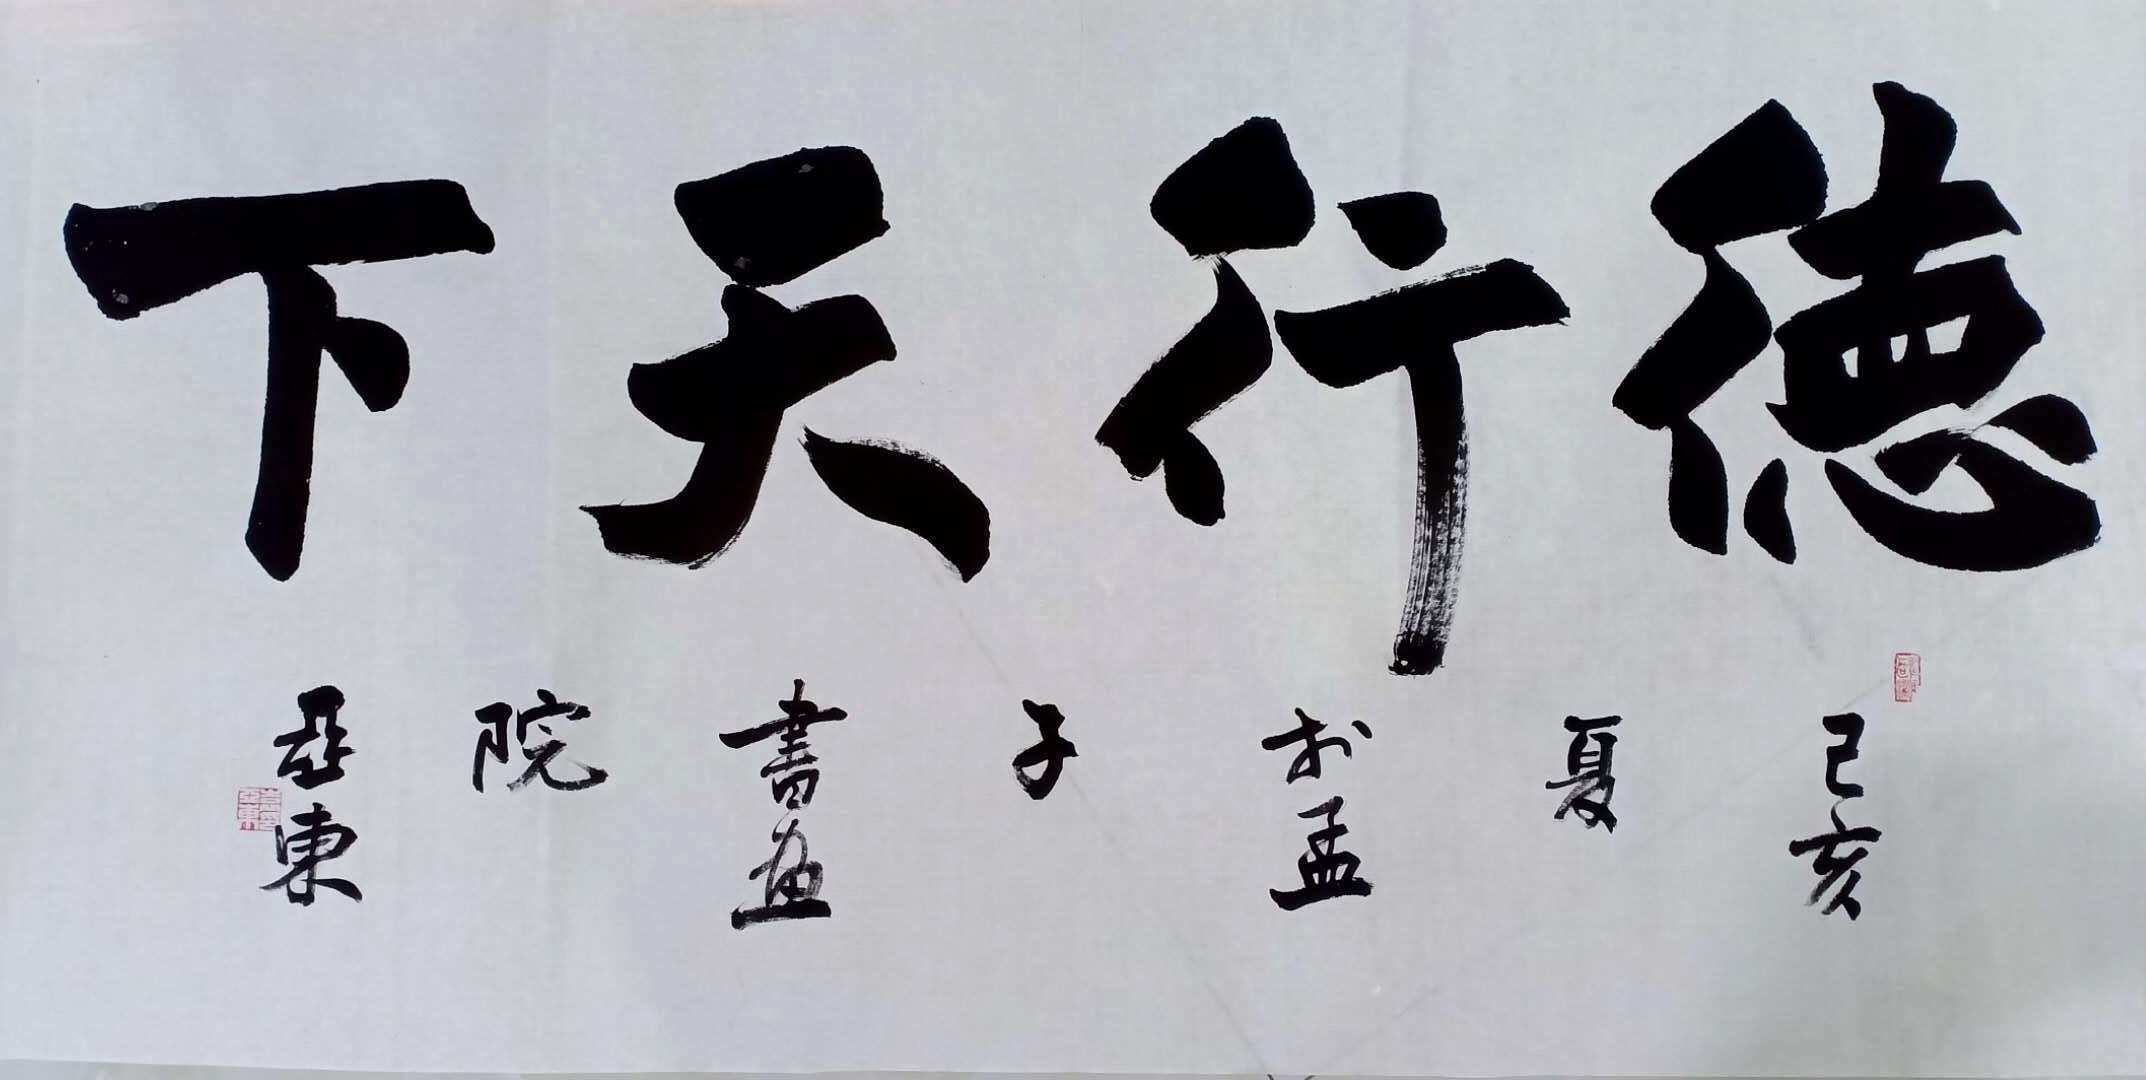 德行天下
己亥夏於孟子書畫院亞東